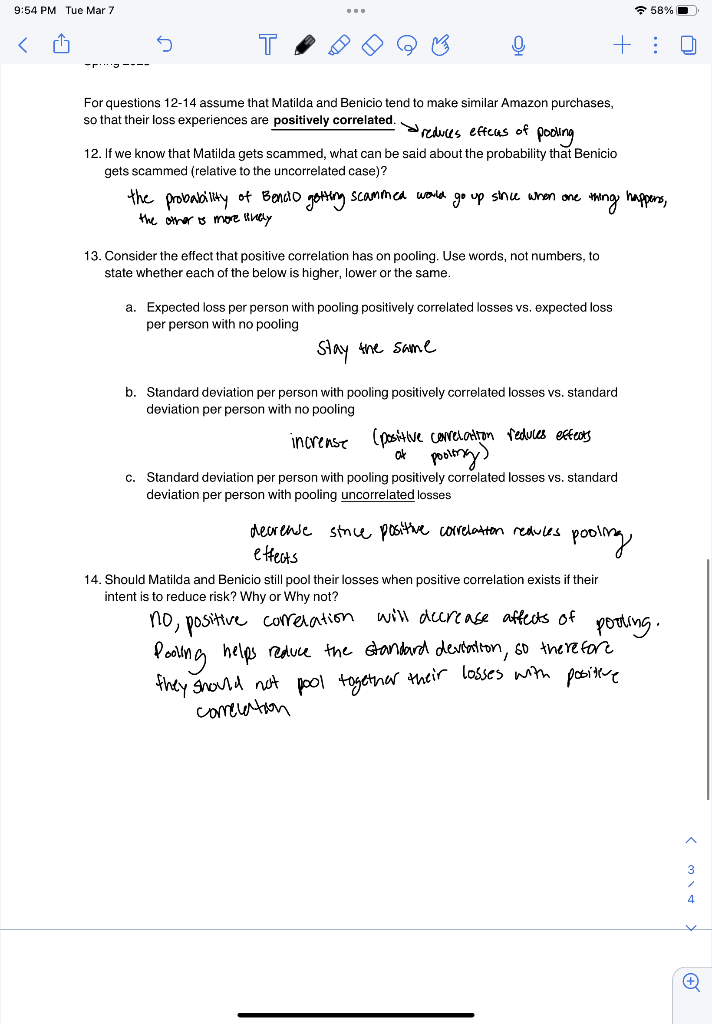 9:54 PM Tue Mar 7
58%
For questions 12-14 assume that Matilda and Benicio tend to make similar Amazon purchases,
so that their loss experiences are positively correlated.
reduces effects of pooling
12. If we know that Matilda gets scammed, what can be said about the probability that Benicio
gets scammed (relative to the uncorrelated case)?
the probability of Bencio getting scammed would go up since when one thing happens,
the other is more likely
13. Consider the effect that positive correlation has on pooling. Use words, not numbers, to
state whether each of the below is higher, lower or the same.
a. Expected loss per person with pooling positively correlated losses vs. expected loss
per person with no pooling
Stay the same
b. Standard deviation per person with pooling positively correlated losses vs. standard
deviation per person with no pooling
increase (positive correlation reduces effects
of pooling)
c. Standard deviation per person with pooling positively correlated losses vs. standard
deviation per person with pooling uncorrelated losses
decrease since positive correlation reduces pooling
effects
14. Should Matilda and Benicio still pool their losses when positive correlation exists if their
intent is to reduce risk? Why or Why not?
no, positive correlation will decrease affects of pooling.
Pooling helps reduce the standard deviation, so therefore
they should not pool together their losses with positive
correlation
3
/
4